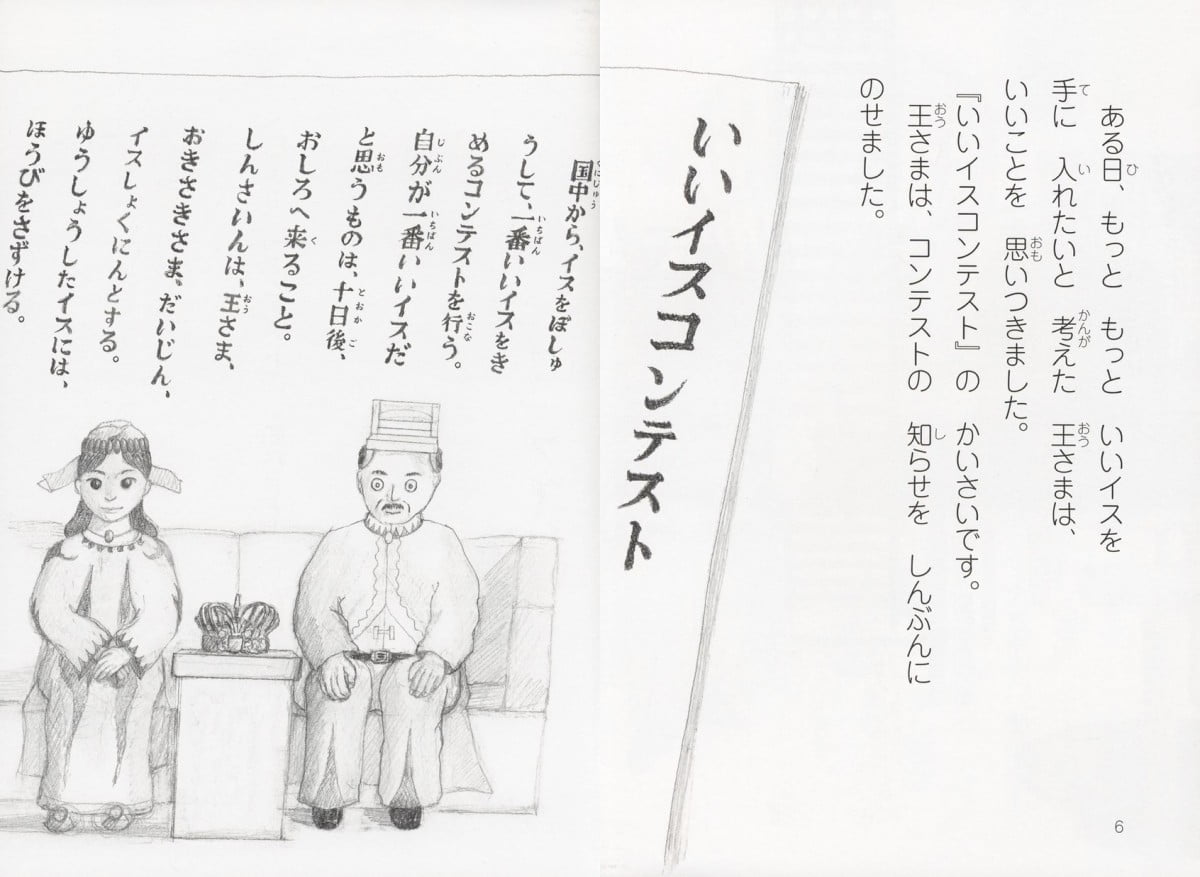 ある日、もっと もっと いいイスを
手に 入れたいと 考えた 王さまは、
いいことを 思いつきました。
『いいイスコンテスト』の かいさいです。
王さまは、コンテストの 知らせを しんぶんに
のせました。
6
いいイスコンテスト
国中から、イスをぼしゅ
うして、一番いいイスをき
めるコンテストを行う。
自分が一番いいイスだ
と思うものは、十日後、
おしろへ来ること。
しんさいんは、王さま、
おきさきさま、だいじん、
イスしょくにんとする。
ゆうしょうしたイスには、
ほうびをさずける。